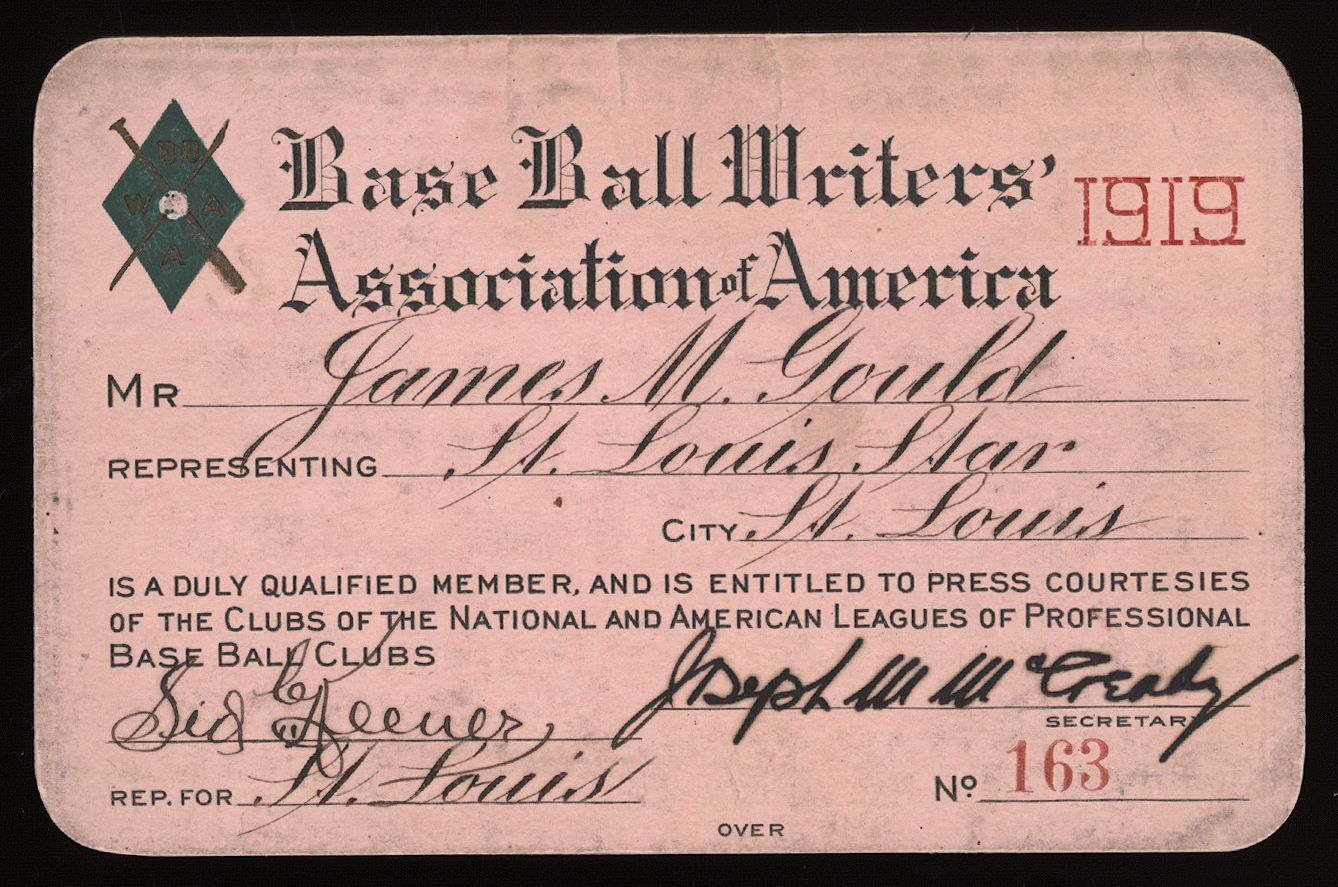 BB
W A
A
Base Ball Writers'
Association of America
1919
MR James M. Gould
REPRESENTING St. Louis Star
CITY St. Louis
IS A DULY QUALIFIED MEMBER, AND IS ENTITLED TO PRESS COURTESIES
OF THE CLUBS OF THE NATIONAL AND AMERICAN LEAGUES OF PROFESSIONAL
BASE BALL CLUBS
Sid C. Keener
Joseph M McCready
SECRETARY
REP. FOR St. Louis
No. 163
OVER